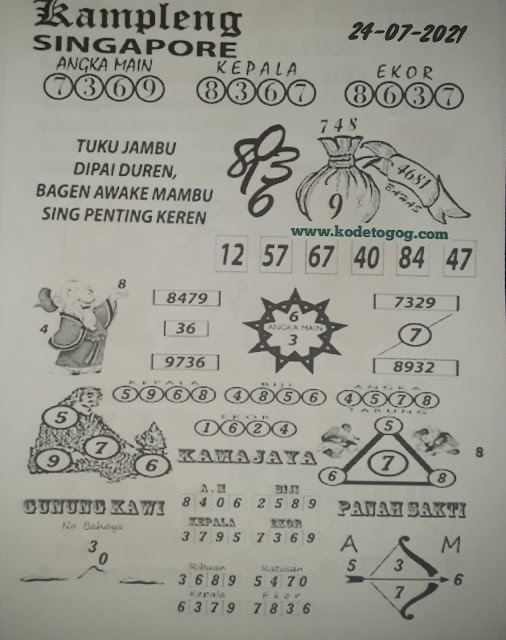 Kampleng
SINGAPORE
24-07-2021
ANGKA MAIN
7 3 6 9
KEPALA
8 3 6 7
EKOR
8 6 3 7
TUKU JAMBU
DIPAI DUREN,
BAGEN AWAKE MAMBU
SING PENTING KEREN
8 3
6
748
9
4681
BAHAS
www.kodetogog.com
12 57 67 40 84 47
8
4
8479
36
9736
6
ANGKA MAIN
3
7329
7
8932
KEPALA
5 9 6 8
BIJI
4 8 5 6
ANGKA
4 5 7 8
TARUNG
EKOR
1 6 2 4
5
9 7 6
KAMAJAYA
5
7
6 8
8
GUNUNG KAWI
No. Bahaya
3
0
A.M
8 4 0 6
BIJI
2 5 8 9
KEPALA
3 7 9 5
EKOR
7 3 6 9
Ribuan
3 6 8 9
Ratusan
5 4 7 0
Kepala
6 3 7 9
Ekor
7 8 3 6
PANAH SAKTI
A M
5 3
7 6